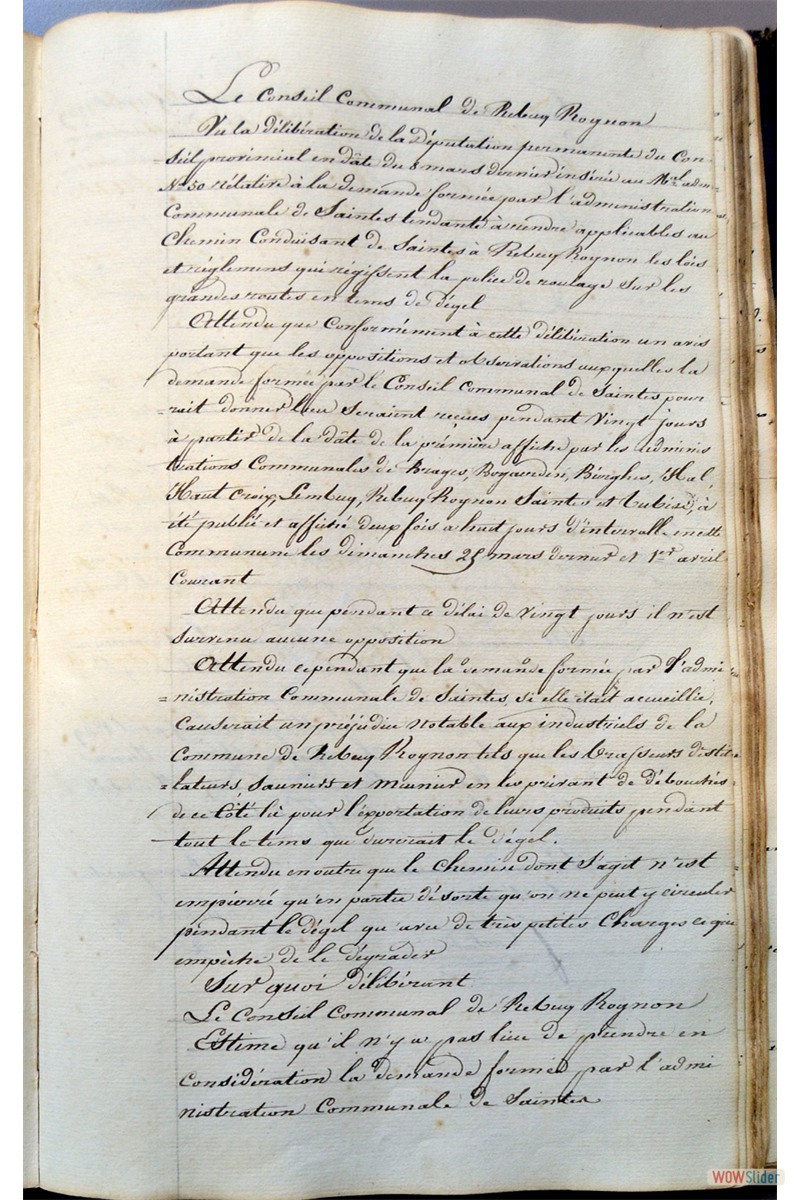 Le Conseil Communal de Rebecq Rognon
Vu la délibération de la Députation permanente du Con
seil provincial en dâte du 8 mars dernier insérée au Mrl. adm
No. 50 rélative à la demande formée par l'administration
Communale de Saintes tendante à rendre applicables au
Chemin Conduisant de Saintes à Rebecq Rognon les lois
et réglemens qui régissent la police de roulage sur les
grandes routes en tems de Dégel
Attendu que Conformément à cette délibération un avis
portant que les oppositions et observations auxquelles la
demande formée par le Conseil Communal de Saintes pour
=rait donner lieu seraient reçues pendant Vingt jours
à partir de la dâte de la prémière affiche par les adminis
trations Communales de Brages, Bogaerden, Bierghes, Hal,
Haut croix, Lembecq, Rebecq Rognon Saintes et Tubise, à
été publié et affiché deux fois à huit jours d'intervalle en cette
Commune les dimanches 25 mars dernier et 1er avril
Courant
Attendu que pendant ce délai de vingt jours il n'est
survenu aucune opposition
Attendu cependant que la demande formée par l'admi
=nistration Communale de Saintes, si elle était accueillie,
Causerait un préjudice notable aux industriels de la
Commune de Rebecq Rognon tels que les brasseurs distil
=lateurs, sauniers et meunier en les privant de débouchés
de ce Côté là pour l'exportation de leurs produits pendant
tout le tems que durerait le dégel.
Attendu en outre que le Chemin dont s'agit n'est
empierré qu'en partie désorte qu'on ne peut y circuler
pendant le dégel qu'avec de très petites Charges ce qui
empêche de le dégrader
Sur quoi délibérant
Le Conseil Communal de Rebecq Rognon
Estime qu'il n'y a pas lieu de prendre en
Considération la demande formée par l'admi
nistration Communale de Saintes
WOWSlider